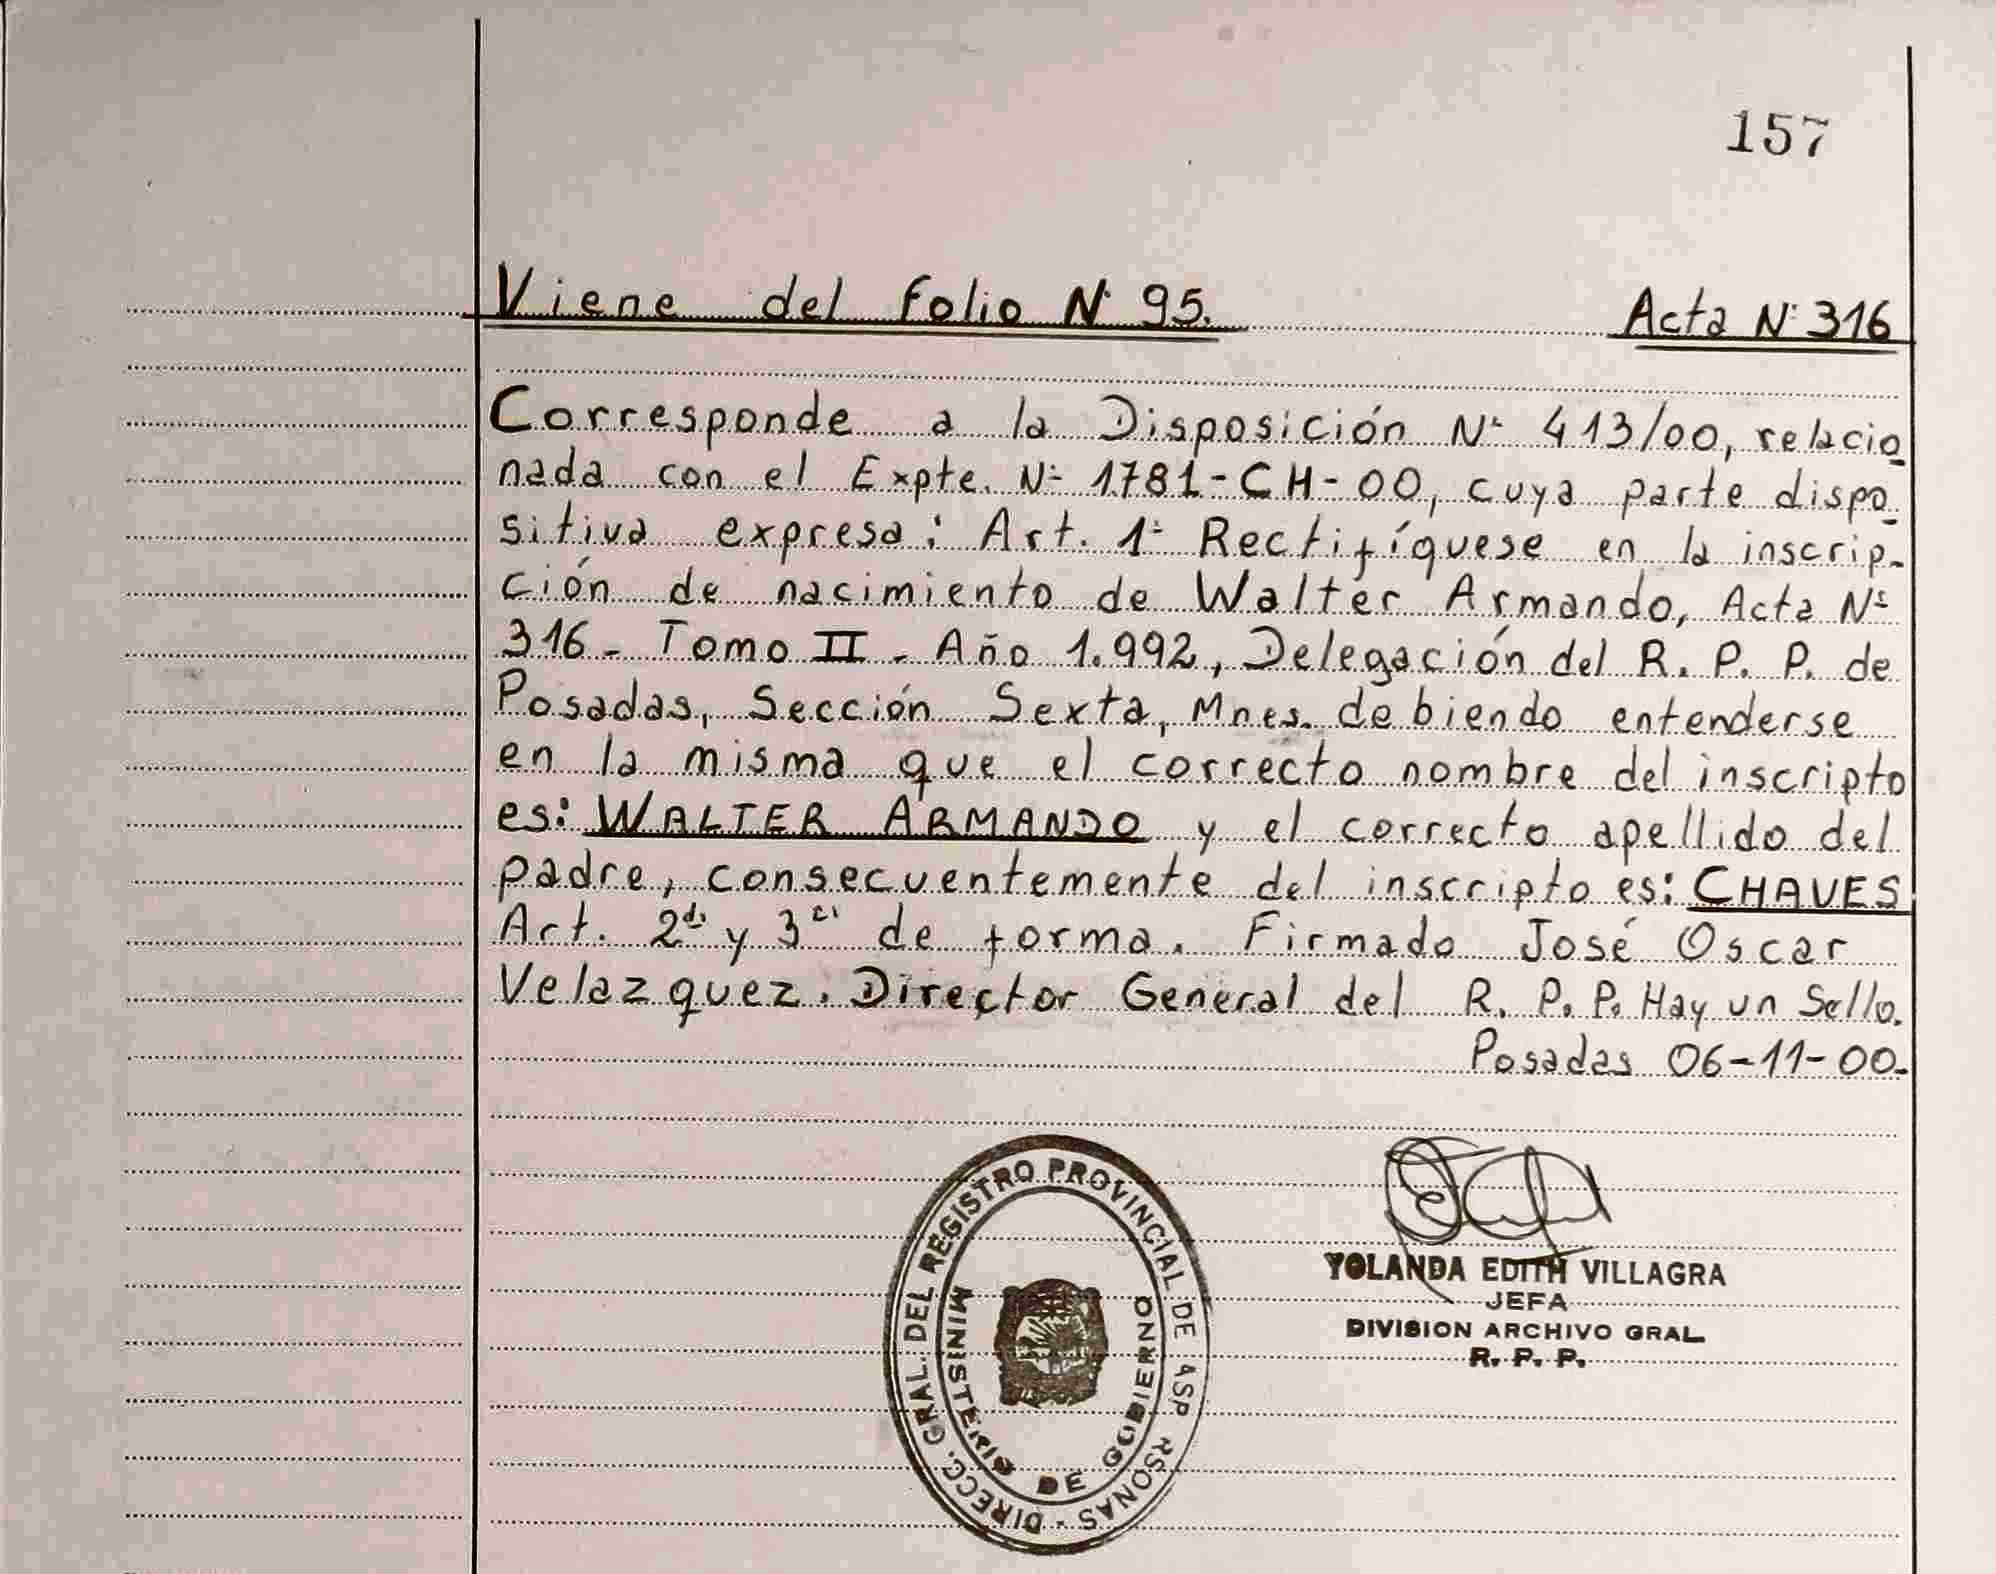 157
Viene del folio Nº 95. Acta Nº 316
Corresponde a la Disposición Nº 413/00, relacio
nada con el Expte. Nº 1781-CH-00, cuya parte dispo
sitiva expresa: Art. 1º Rectifíquese en la inscrip-
ción de nacimiento de Walter Armando, Acta Nº
316- Tomo II - Año 1.992, Delegación del R. P. P. de
Posadas, Sección Sexta, Mnes. debiendo entenderse
en la misma que el correcto nombre del inscripto
es: WALTER ARMANDO y el correcto apellido del
padre, consecuentemente del inscripto es: CHAVES
Art. 2do y 3er de forma. Firmado José Oscar
Velazquez. Director General del R. P. P. Hay un Sello.
Posadas 06-11-00.
DIRECC. GRAL. DEL REGISTRO PROVINCIAL DE LAS PERSONAS -
MINISTERIO DE GOBIERNO
YOLANDA EDITH VILLAGRA
JEFA
DIVISION ARCHIVO GRAL.
R. P. P.